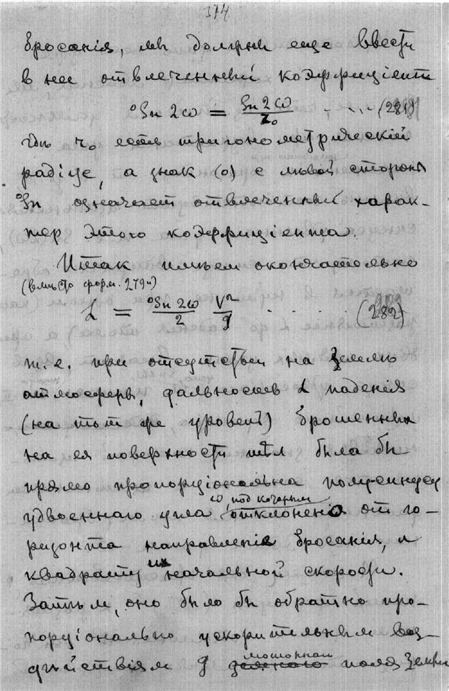 174
бросанія, мы должны еще ввести
в нее отвлеченный коэффиціентъ
°Sn 2ω = Sn 2ω / r₀ . . . . (281)
гдѣ r₀ есть тригонометрическій
радіус, а знак (o) с лѣвой стороны
°Sn означает отвлеченный харак-
тер этого коэффиціента.
Итак имѣем окончательно
(вмѣсто форм. 279)
L = °Sn 2ω / 2 V² / g . . . . . . (282)
т. е. при отсутствіи на Землѣ
атмосферы, дальность L паденія
(на тот же уровень) брошенных
на ея поверхности тѣл была бы
прямо пропорціональна полу-синусу
удвоеннаго угла ω, под которым отклонено от го-
ризонта направленіе бросанія, и
квадрату их начальной скорости.
Затѣм, оно было бы обратно про-
порціонально ускорительным воз-
дѣйствіям g моторнаго поля Земли